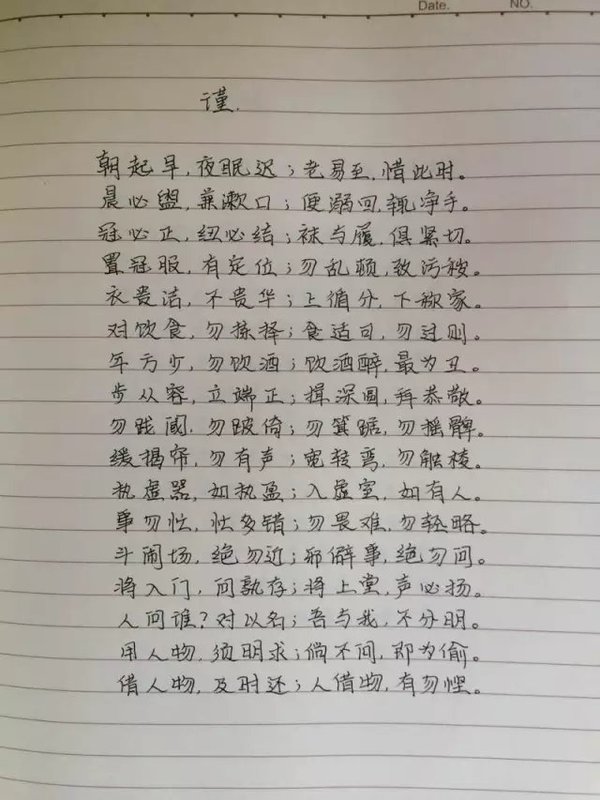 Date.
NO.
谨.
朝起早,夜眠迟;老易至,惜此时。
晨必盥,兼漱口;便溺回,辄净手。
冠必正,纽必结;袜与履,俱紧切。
置冠服,有定位;勿乱顿,致污秽。
衣贵洁,不贵华;上循分,下称家。
对饮食,勿拣择;食适可,勿过则。
年方少,勿饮酒;饮酒醉,最为丑。
步从容,立端正;揖深圆,拜恭敬。
勿践阈,勿跛倚;勿箕踞,勿摇髀。
缓揭帘,勿有声;宽转弯,勿触棱。
执虚器,如执盈;入虚室,如有人。
事勿忙,忙多错;勿畏难,勿轻略。
斗闹场,绝勿近;邪僻事,绝勿问。
将入门,问孰存;将上堂,声必扬。
人问谁?对以名;吾与我,不分明。
用人物,须明求;倘不问,即为偷。
借人物,及时还;人借物,有勿悭。